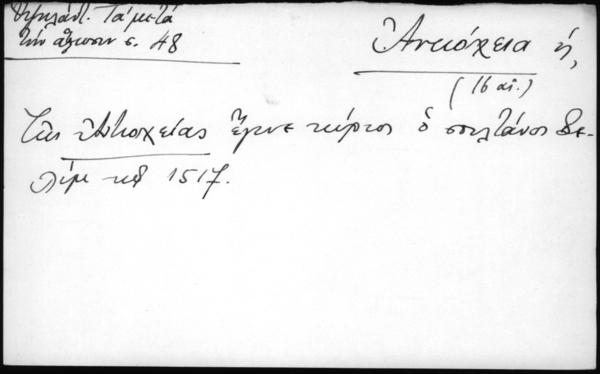 Υψηλάντ. Τα μετά
την άλωσιν σ. 48
Ἀντιόχεια ἡ,
(16 αἰ.)
Τῆς Ἀντιοχείας ἔγινε κύριος ὁ σουλτάνος Σε-
λίμ τῷ 1517.